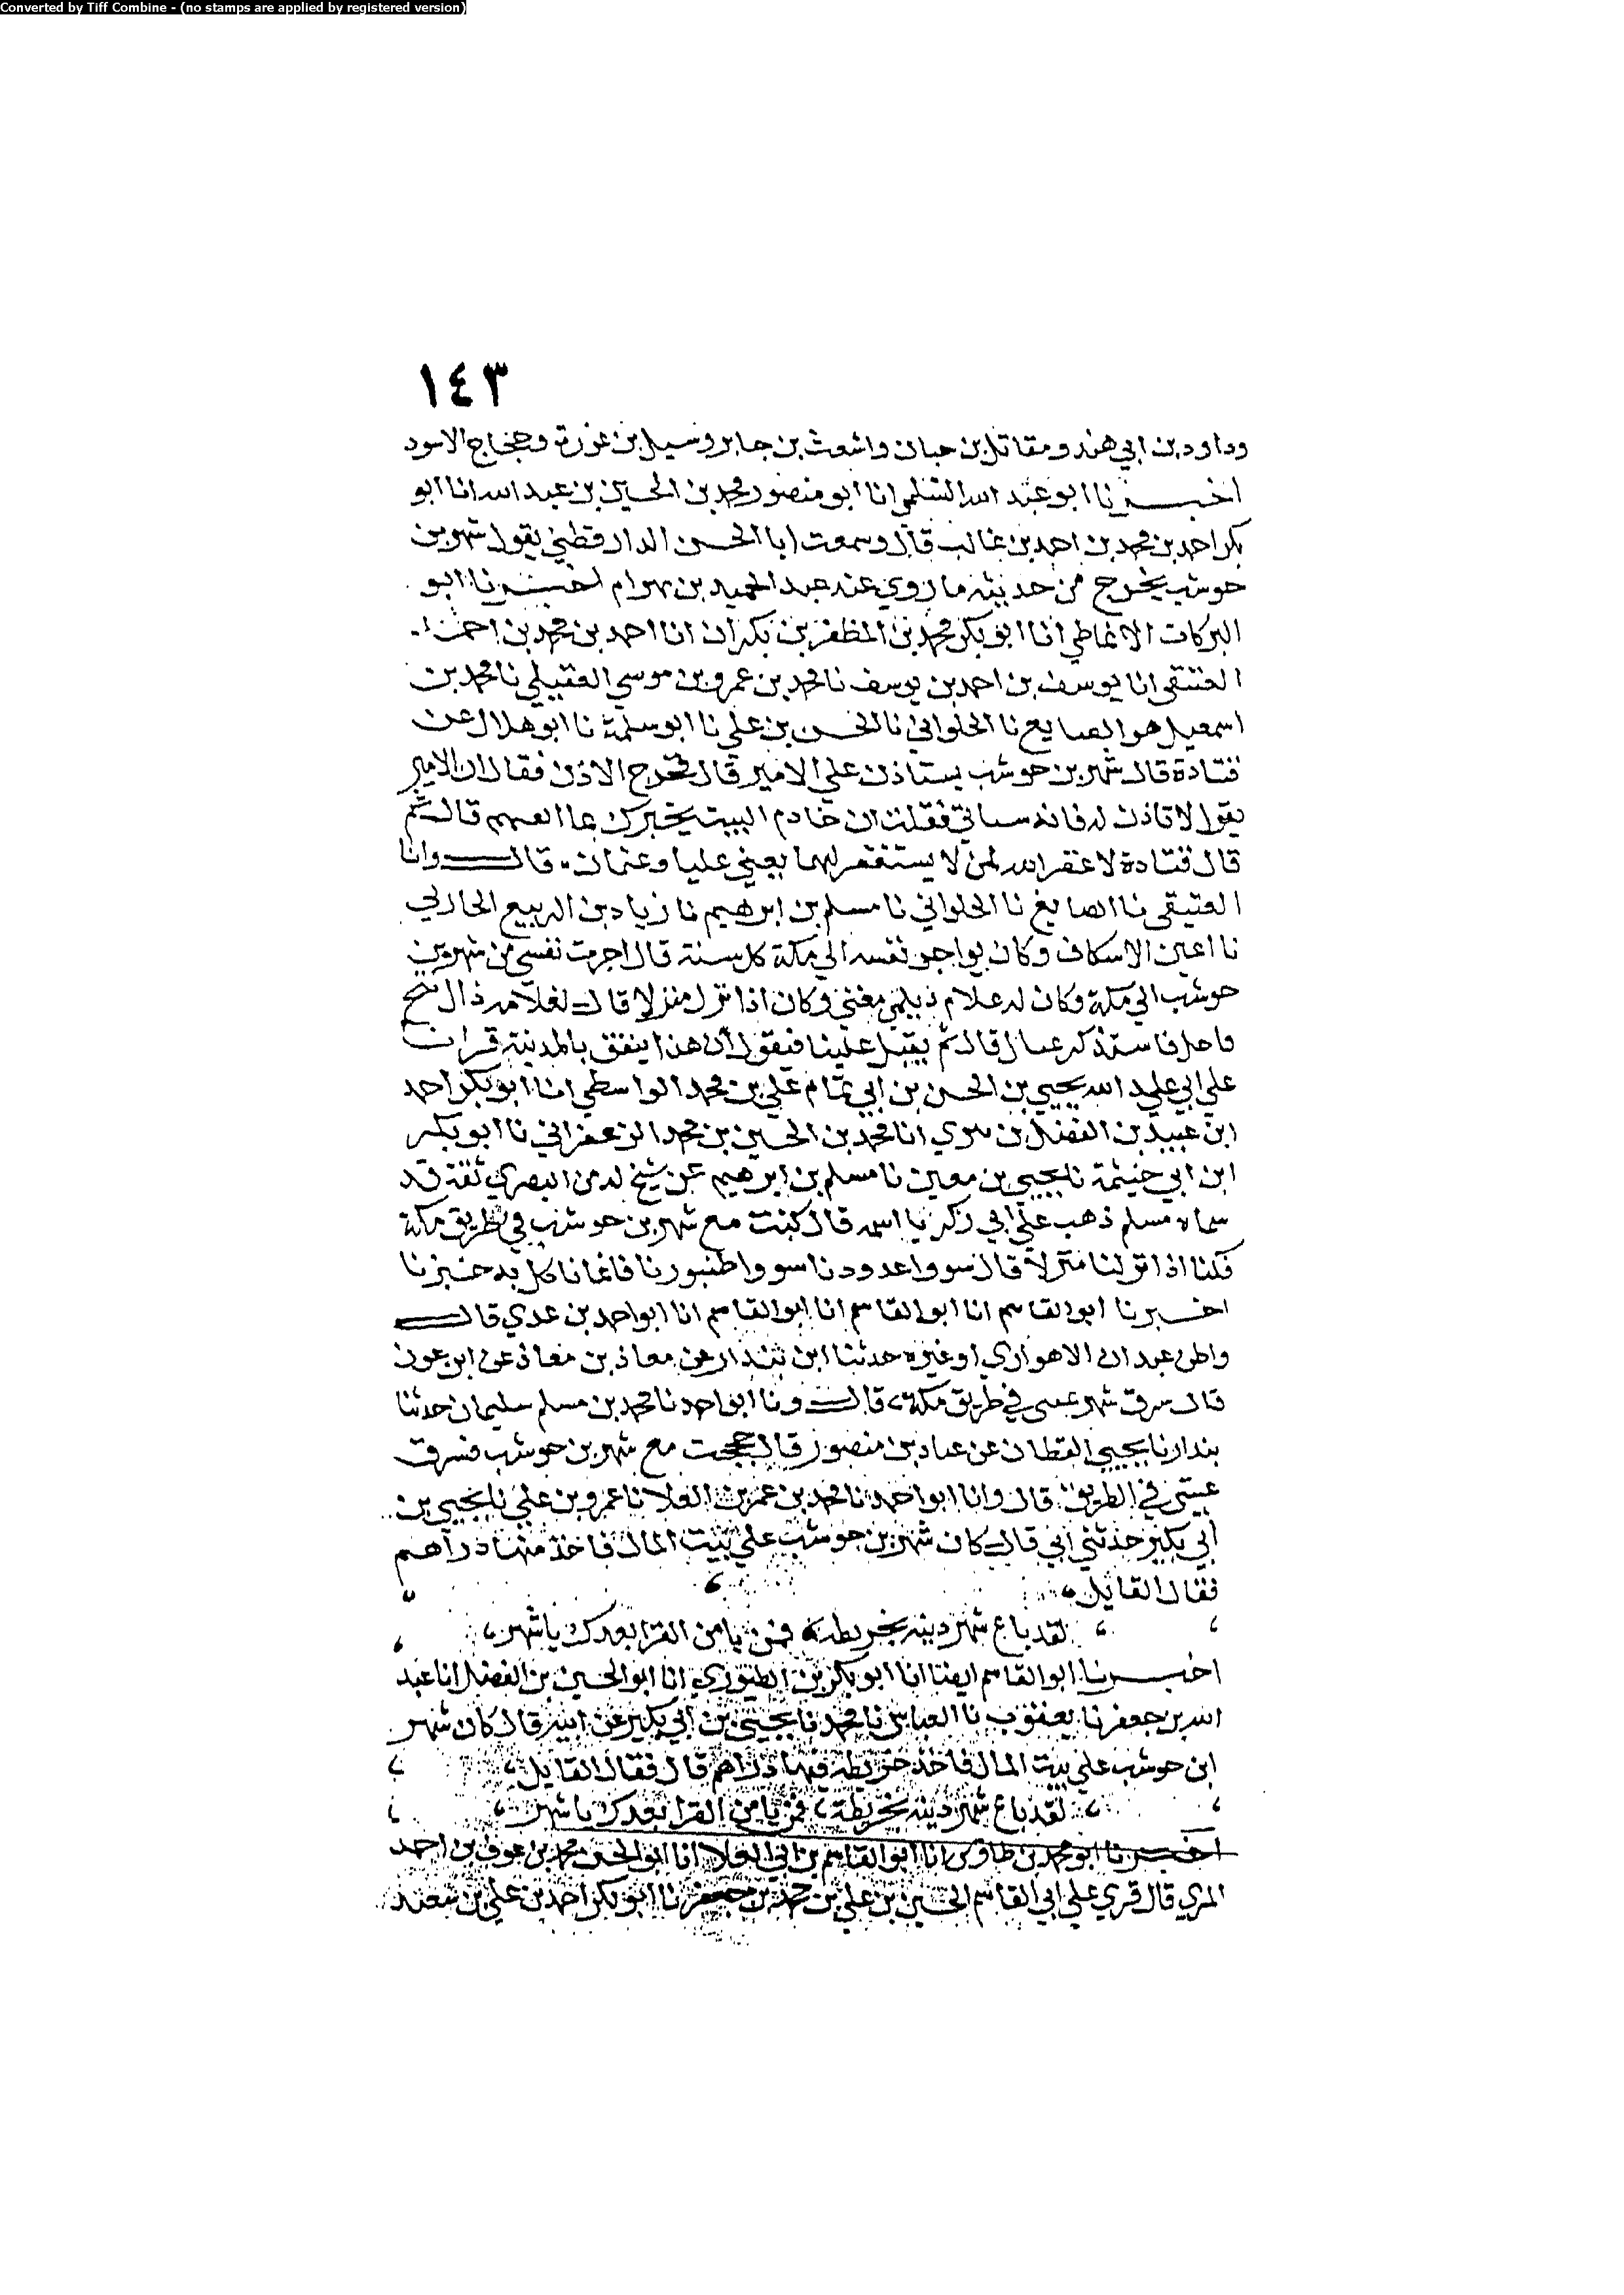 Converted by Tiff Combine - (no stamps are applied by registered version)
١٤٣
وداود بن ابي هند ومقاتل بن حيان واشعث بن جابر وسيل بن عزرة وحجاج الاسود
اخبرنا ابو عبد الله السلمي انا ابو منصور محمد بن الحسين بن عبد الله انا ابو
بكر احمد بن محمد بن احمد بن غالب قال وسمعت ابا الحسن الدارقطني يقول شهر بن
حوشب يخرج من حديثه ما روي عنه عبد الحميد بن بهرام اخبرنا ابو
البركات الانماطي انا ابو بكر محمد بن المظفر بن بكران انا احمد بن محمد بن احمد
العتيقي انا يوسف بن احمد بن يوسف نا محمد بن عمرو بن موسي العقيلي نا محمد بن
اسمعيل هو الصايغ نا الحلواني نا الحسن بن علي نا ابو سلمة نا ابو هلال عن
قتادة قال شهر بن حوشب يستاذن علي الامير قال فخرج الاذن فقال ان الامير
يقول لا تاذن له فانه سبائي فقلت ان خادم البيت يخبرك بما انفسهم قال ثم
قال قتادة لا غفر الله لمن لا يستغفر لهما يعني عليا وعثمان قال وانا
العتيقي نا الصايغ نا الحلواني نا مسلم بن ابرهيم نا زياد بن الربيع الحارثي
نا اعين الاسكاف وكان يواجر نفسه الي مكة كل سنة قال اجرت نفسي من شهر بن
حوشب الي مكة وكان له غلام ديلمي مغني وكان اذا نزل منزلا قال لغلامه ذال تنح
فاستذكر قال ثم يقبل علينا فيقول ان هذا ينفق بالمدينة قرات
علي ابي عبد الله يحيي بن الحسن بن ابي تمام علي بن محمد الواسطي انا ابو بكر احمد
ابن عبيد بن الفضل بن بيري انا محمد بن الحسين بن محمد الزعفراني نا ابو بكر
ابن ابي خيثمة نا يحيي بن معين نا مسلم بن ابرهيم عن شيخ له من البصري ثقة قد
سماه مسلم ذهب علي ابي زكريا اسمه قال كنت مع شهر بن حوشب في طريق مكة
فكنا اذا نزلنا منزلا قال سووا عدودنا سووا طنبورنا فانما ناكل به خبزنا
اخبرنا ابو القاسم انا ابو القاسم انا ابو القاسم انا ابو احمد بن عدي قال
واظن عبدان الاهوازي او غيره حدثنا ابن بندار عن معاذ بن معاذ عن ابن عون
قال سرق شهر عيبتي في طريق مكة، قال ونا ابو احمد نا محمد بن مسلم سليمان حدثنا
بندار نا يحيي القطان عن عباد بن منصور قال حججت مع شهر بن حوشب فسرق
عيبتي في الطريق قال وانا ابو احمد نا محمد بن عمر بن العلا نا عمرو بن علي نا يحيي بن
ابي بكير حدثني ابي قال كان شهر بن حوشب علي بيت المال فاخذ منها دراهم
فقال القايل،
لقد باع شهر دينه بخريطة فمن يامن القرا بعدك يا شهر،
اخبرنا ابو القاسم ايضا انا ابو بكر بن الطبري انا ابو الحسين بن الفضل انا عبد
الله بن جعفر نا يعقوب نا العباس بن محمد نا يحيي بن ابي بكير عن ابيه قال كان شهر
ابن حوشب علي بيت المال فاخذ خريطة فيها دراهم قال فقال القايل،
لقد باع شهر دينه بخريطة، فمن يامن القرا بعدك يا شهر
اخبرنا ابو محمد بن طاوس انا ابو القاسم بن ابي العلا انا ابو الحسن محمد بن عوف بن احمد
المري قال قري علي ابي القاسم الحسين بن علي بن جعفر نا ابو بكر احمد بن علي بن سعيد